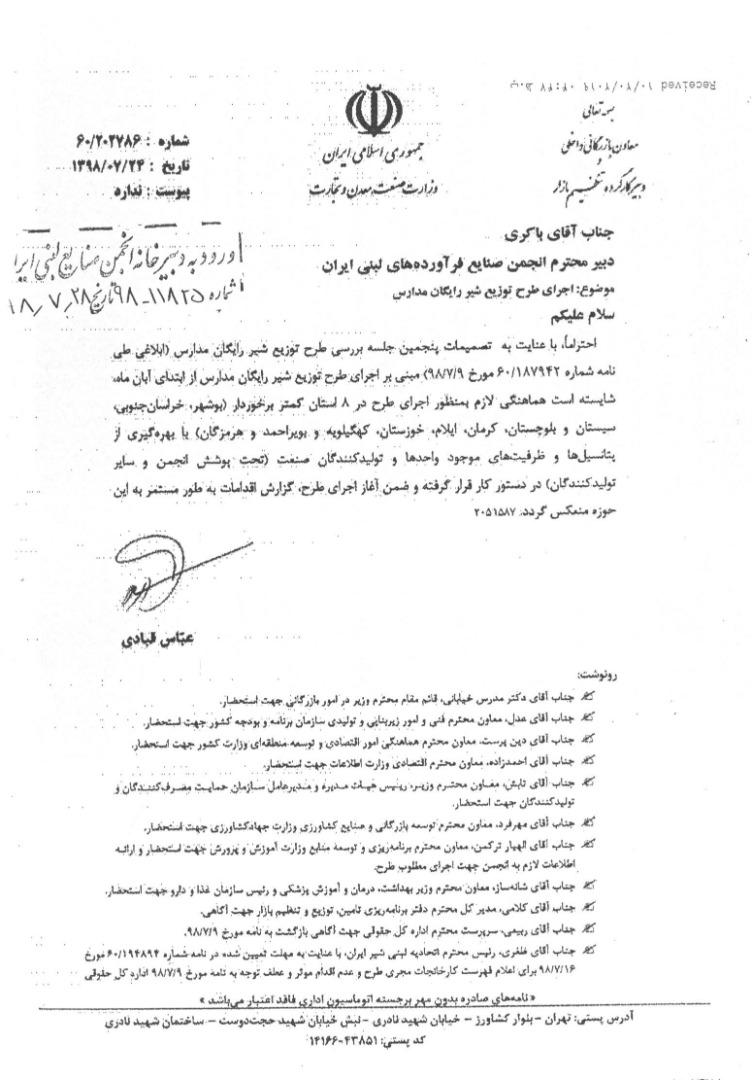 Received
بسمه تعالی
معاون بازرگانی داخلی
و
دبیر کارگروه تنظیم بازار
جمهوری اسلامی ایران
وزارت صنعت، معدن و تجارت
شماره : ۶۰/۲۰۲۷۸۶
تاریخ : ۱۳۹۸/۰۷/۲۴
پیوست : ندارد
ورود به دبیرخانه انجمن صنایع لبنی ایرا
شماره ۱۱۸۲۵-۹۸ تاریخ ۲۸
جناب آقای باکری
دبیر محترم انجمن صنایع فرآورده‌های لبنی ایران
موضوع: اجرای طرح توزیع شیر رایگان مدارس
سلام علیکم
احتراماً، با عنایت به تصمیمات پنجمین جلسه بررسی طرح توزیع شیر رایگان مدارس (ابلاغی طی
نامه شماره ۶۰/۱۸۷۹۴۲ مورخ ۹۸/۷/۹) مبنی بر اجرای طرح توزیع شیر رایگان مدارس از ابتدای آبان ماه،
شایسته است هماهنگی لازم بمنظور اجرای طرح در ۸ استان کمتر برخوردار (بوشهر، خراسان‌جنوبی،
سیستان و بلوچستان، کرمان، ایلام، خوزستان، کهگیلویه و بویراحمد و هرمزگان) با بهره‌گیری از
پتانسیل‌ها و ظرفیت‌های موجود واحدها و تولیدکنندگان صنعت (تحت پوشش انجمن و سایر
تولیدکنندگان) در دستور کار قرار گرفته و ضمن آغاز اجرای طرح، گزارش اقدامات به طور مستمر به این
حوزه منعکس گردد. ۲۰۵۱۵۸۷
عبّاس قبادی
رونوشت:
جناب آقای دکتر مدرس خیابانی، قائم مقام محترم وزیر در امور بازرگانی جهت استحضار.
جناب آقای عدل، معاون محترم فنی و امور زیربنایی و تولیدی سازمان برنامه و بودجه کشور جهت استحضار.
جناب آقای دین پرست، معاون محترم هماهنگی امور اقتصادی و توسعه منطقه‌ای وزارت کشور جهت استحضار.
جناب آقای احمدزاده، معاون محترم اقتصادی وزارت اطلاعات جهت استحضار.
جناب آقای تابش، معاون محترم وزیر، رییس هیات مدیره و مدیرعامل سازمان حمایت مصرف‌کنندگان و
تولیدکنندگان جهت استحضار.
جناب آقای مهرفرد، معاون محترم توسعه بازرگانی و صنایع کشاورزی وزارت جهادکشاورزی جهت استحضار.
جناب آقای الهیار ترکمن، معاون محترم برنامه‌ریزی و توسعه منابع وزارت آموزش و پرورش جهت استحضار و ارائه
اطلاعات لازم به انجمن جهت اجرای مطلوب طرح.
جناب آقای شانه‌ساز، معاون محترم وزیر بهداشت، درمان و آموزش پزشکی و رئیس سازمان غذا و دارو جهت استحضار.
جناب آقای کلامی، مدیر کل محترم دفتر برنامه‌ریزی تامین، توزیع و تنظیم بازار جهت آگاهی.
جناب آقای ربیعی، سرپرست محترم اداره کل حقوقی جهت آگاهی بازگشت به نامه مورخ ۹۸/۷/۹.
جناب آقای ظفری، رئیس محترم اتحادیه لبنی شیر ایران، با عنایت به مهلت تعیین شده در نامه شماره ۶۰/۱۹۴۸۹۴ مورخ
۹۸/۷/۱۶ برای اعلام فهرست کارخانجات مجری طرح و عدم اقدام موثر و عطف توجه به نامه مورخ ۹۸/۷/۹ اداره کل حقوقی
« نامه‌های صادره بدون مهر برجسته اتوماسیون اداری فاقد اعتبار می‌باشد »
آدرس پستی: تهران – بلوار کشاورز – خیابان شهید نادری – نبش خیابان شهید حجت‌دوست – ساختمان شهید نادری
کد پستی: ۴۳۸۵۱-۱۴۱۶۶